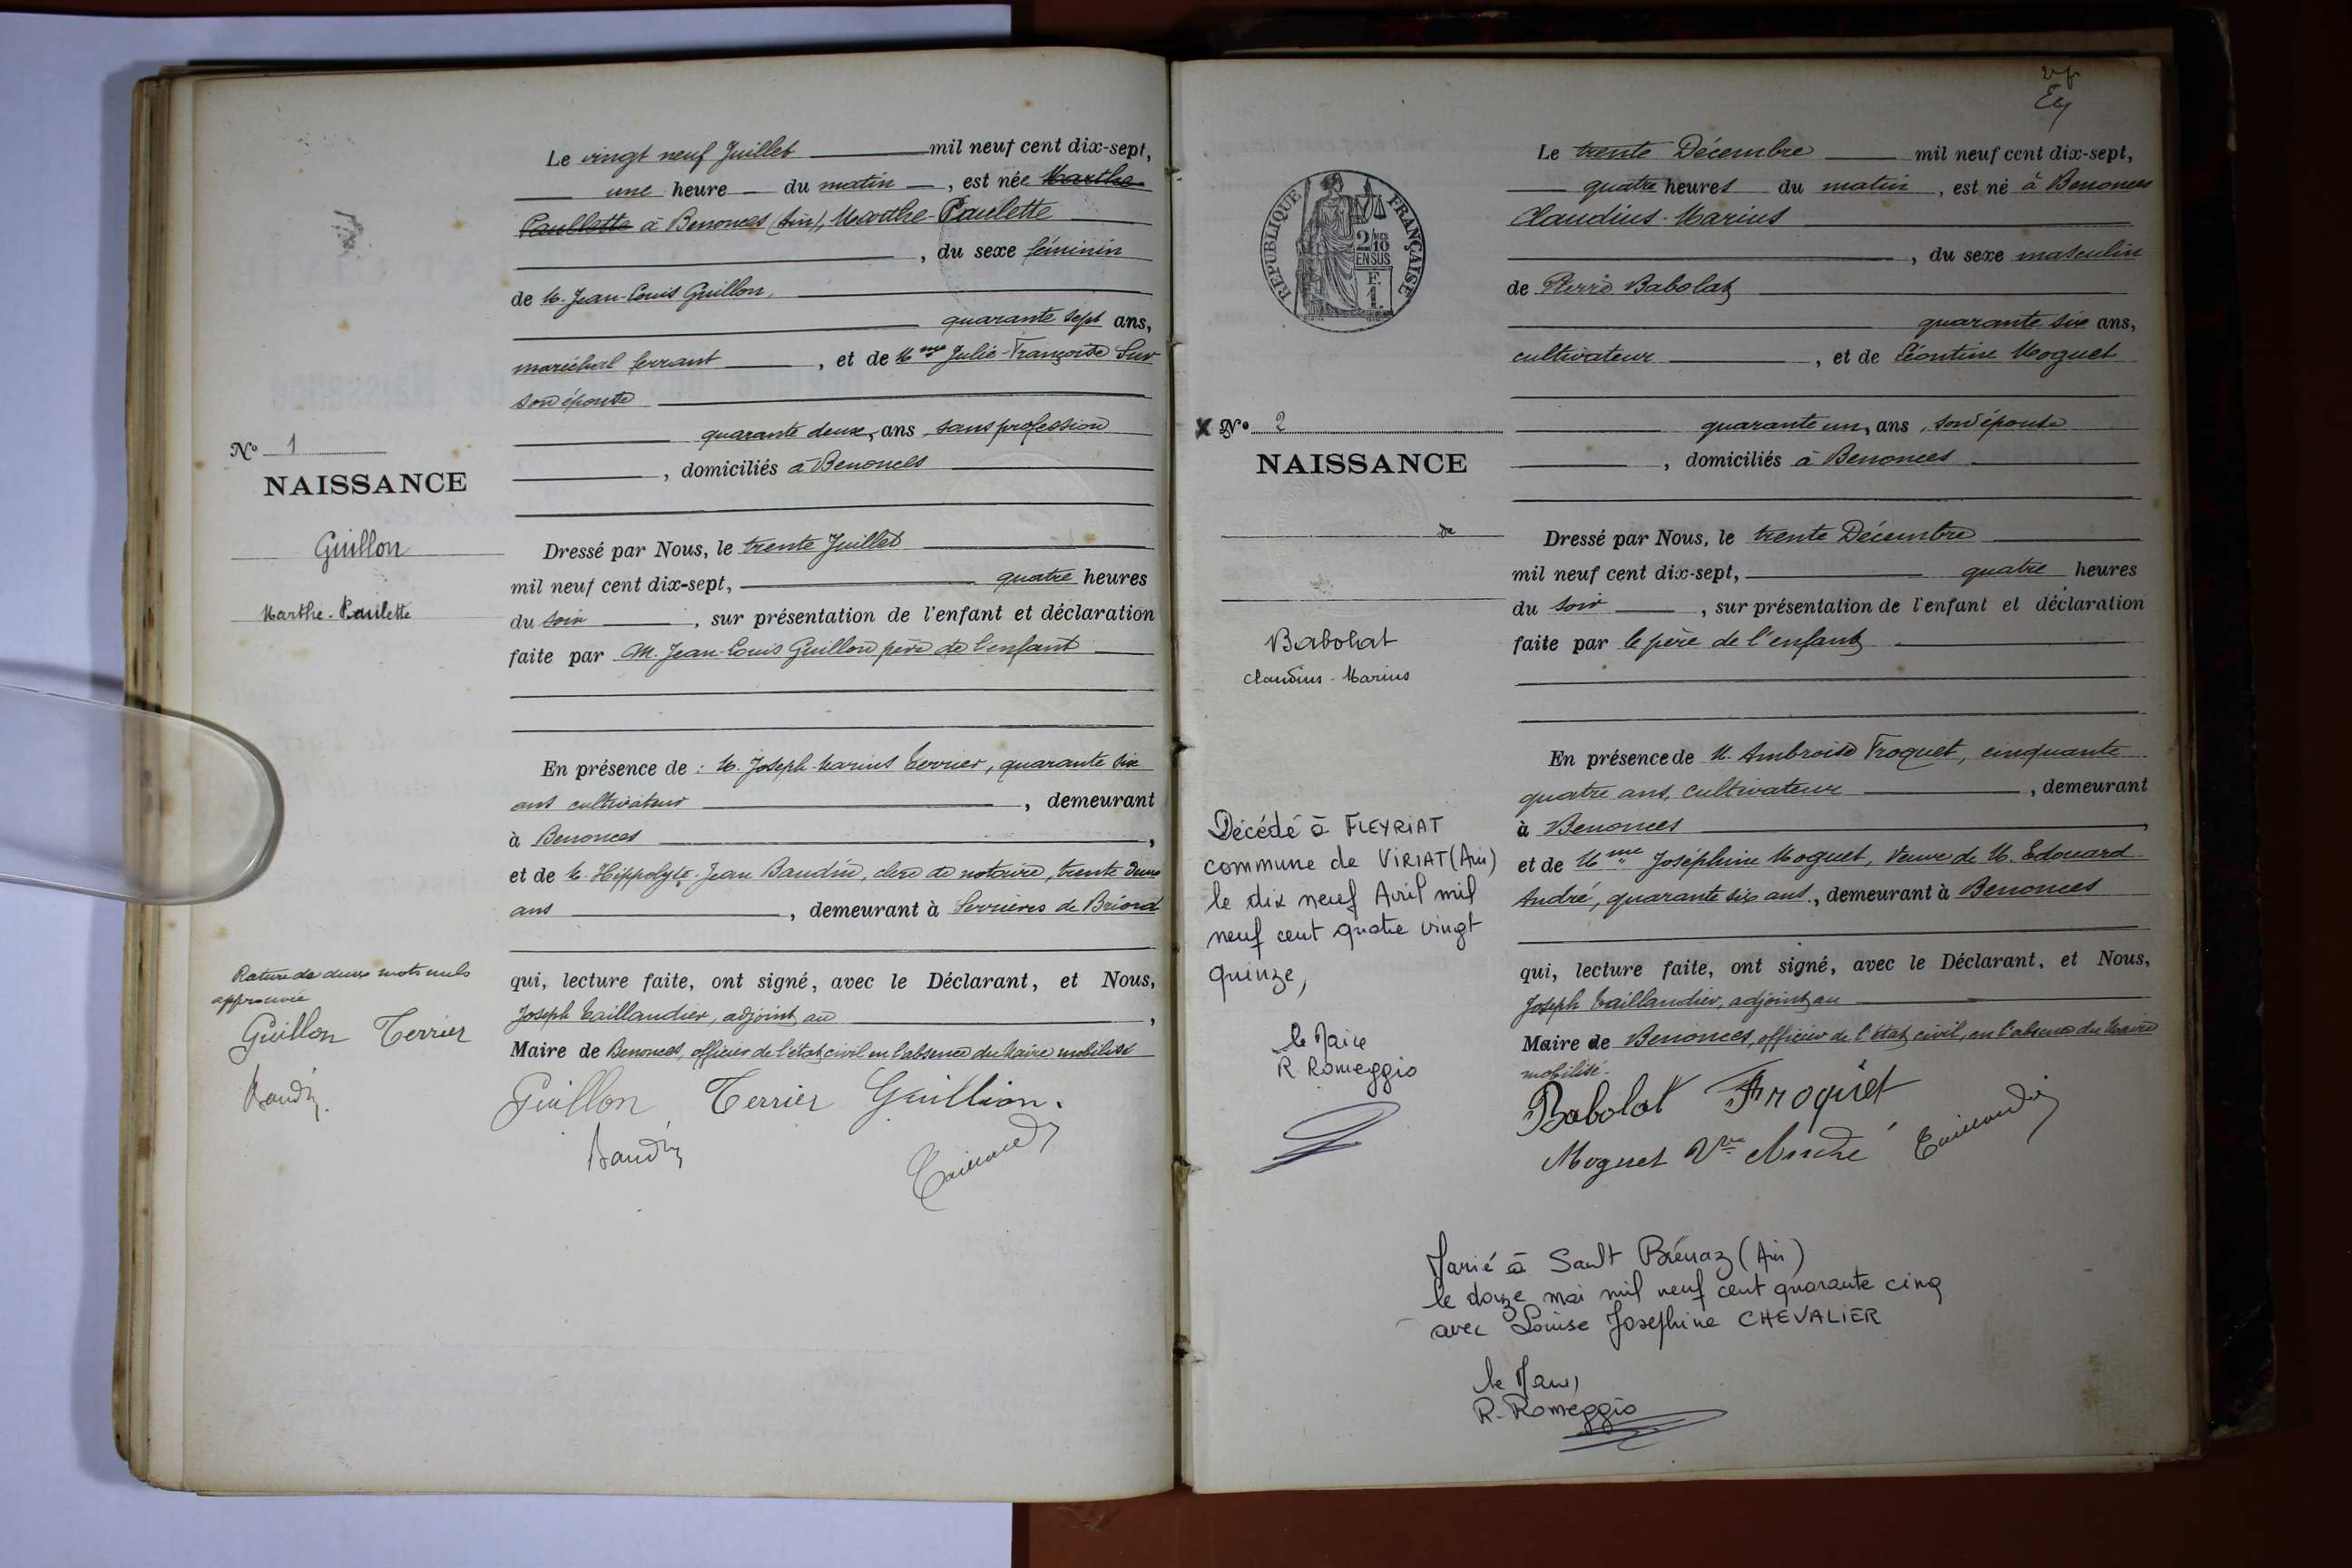 Le vingt neuf Juillet mil neuf cent dix-sept,
une heure du matin, est née Marthe
Paullette à Benonces (Ain), Marthe-Paulette
, du sexe féminin
de M. Jean-Louis Guillon,
quarante sept ans,
maréchal ferrant, et de Mme Julie-Françoise
son épouse
quarante deux, ans sans profession
, domiciliés à Benonces
Nº 1
NAISSANCE
Guillon
Marthe-Paulette
Dressé par Nous, le trente Juillet
mil neuf cent dix-sept, quatre heures
du soir, sur présentation de l'enfant et déclaration
faite par M. Jean-Louis Guillon père de l'enfant
En présence de : M. Joseph-Marius Terrier, quarante six
ans cultivateur, demeurant
à Benonces,
et de M. Hippolyte-Jean Baudin, clerc de notaire, trente deux
ans, demeurant à Serrières de Briord
qui, lecture faite, ont signé, avec le Déclarant, et Nous,
Joseph Taillandier, adjoint au,
Maire de Benonces, officier de l'état civil en l'absence du Maire mobilisé
Rature de deux mots nuls
approuvée
Guillon Terrier
Baudin
Guillon Terrier Guillion.
Baudin Taillandier
Le trente Décembre mil neuf cent dix-sept,
quatre heures du matin, est né à Benonces
Claudius-Marius
, du sexe masculin
de Pierre Babolat
quarante six ans,
cultivateur, et de Léontine Moguet
quarante un, ans, son épouse
, domiciliés à Benonces
RÉPUBLIQUE FRANÇAISE
2/10 MES
EN SUS
F.
1.
X Nº 2
NAISSANCE
de
Babolat
Claudius-Marius
Dressé par Nous, le trente Décembre
mil neuf cent dix-sept, quatre heures
du soir, sur présentation de l'enfant et déclaration
faite par le père de l'enfant
En présence de M. Ambroise Froquet, cinquante
quatre ans, cultivateur, demeurant
à Benonces,
et de Mme Joséphine Moguet, Veuve de M. Edouard
André, quarante six ans., demeurant à Benonces
qui, lecture faite, ont signé, avec le Déclarant, et Nous,
Joseph Taillandier, adjoint au
Maire de Benonces, officier de l'état civil, en l'absence du Maire
mobilisé.
Babolat Froquet
Moguet Vve André Taillandier
Décédé à FLEYRIAT
commune de VIRIAT (Ain)
le dix neuf Avril mil
neuf cent quatre vingt
quinze,
le Maire
R Romeggio
Marié à Sault Brénaz (Ain)
le douze mai mil neuf cent quarante cinq
avec Louise Josephine CHEVALIER
le Maire
R. Romeggio